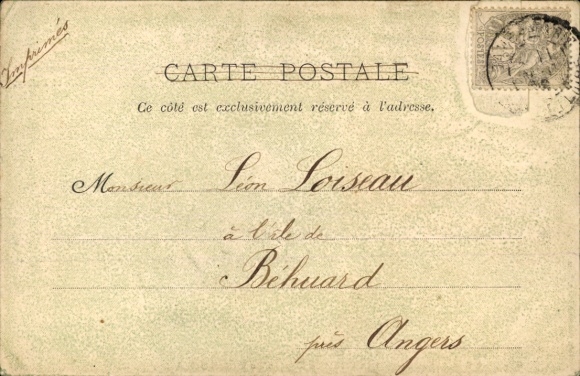 Imprimés
CARTE POSTALE
Ce côté est exclusivement réservé à l'adresse.
Monsieur Léon Loiseau
à l'île de
Béhuard
près Angers